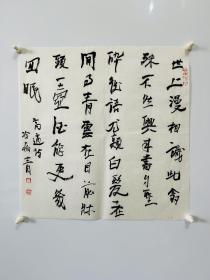 世上漫相識此翁
殊不然興来書自聖
醉後語尤顛白髮老
閒事青雲在目前牀
頭一壺酒能更幾
回眠
高適詩